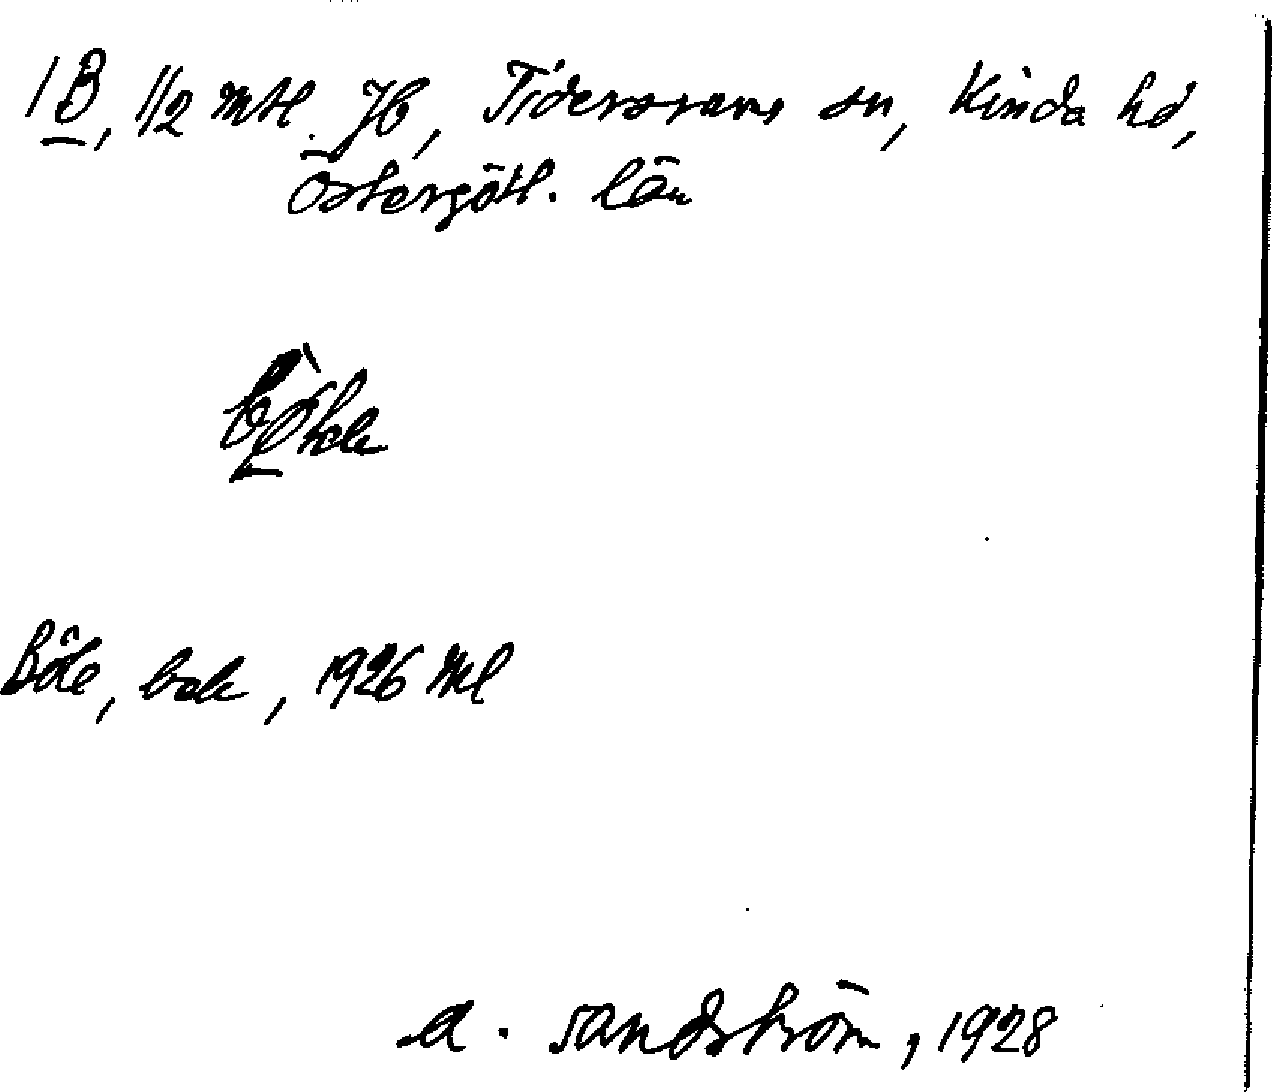 1 B, 1/2 mtl. Jb, Tidersrums sn, Kinda hd,
Östergötl. län
Böle, bok, 1926 Ml
A. Sandström, 1928